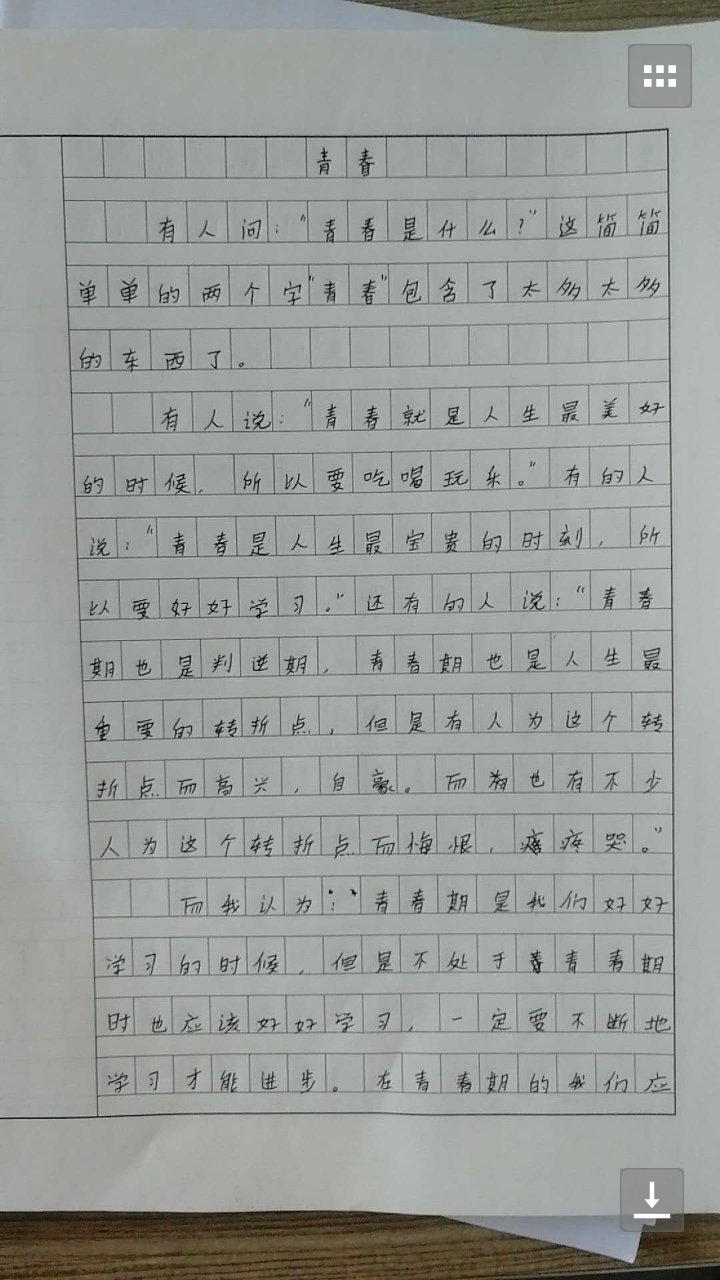 青春
有人问：“青春是什么？”这简简
单单的两个字“青春”包含了太多太多
的东西了。
有人说：“青春就是人生最美好
的时候，所以要吃喝玩乐。”有的人
说：“青春是人生最宝贵的时刻，所
以要好好学习。”还有的人说：“青春
期也是判逆期，青春期也是人生最
重要的转折点，但是有人为这个转
折点而高兴，自豪。而也有不少
人为这个转折点而悔恨，痛哭。”
而我认为：“青春期是我们好好
学习的时候，但是不处于青春期
时也应该好好学习，一定要不断地
学习才能进步。在青春期的我们应